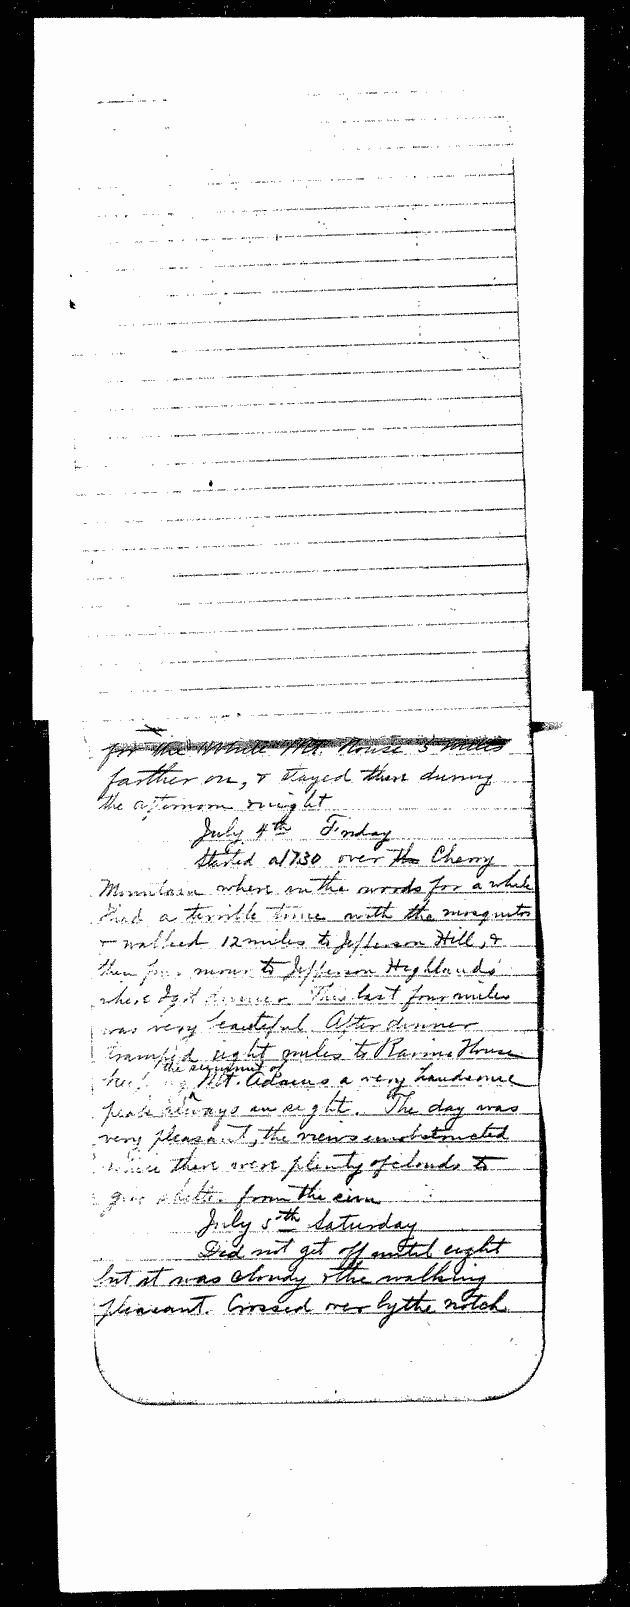 for the White Mt. House 3 miles
farther on, & stayed there during
the afternoon & night
July 4th Friday
Started at 7.30 over the Cherry
Mountain where in the woods for a while
I had a terrible time with the mosquitos
& walked 12 miles to Jefferson Hill, &
then four more to Jefferson Highlands
where I got dinner. This last four miles
was very beautiful. After dinner
tramped eight miles to Ravine House
the summit of
Mt. Adams a very handsome
peak always in sight. The day was
very pleasant, the views unobstructed
while there were plenty of clouds to
give shelter from the sun
July 5th Saturday
Did not get off until eight
but it was cloudy & the walking
pleasant. Crossed over by the notch